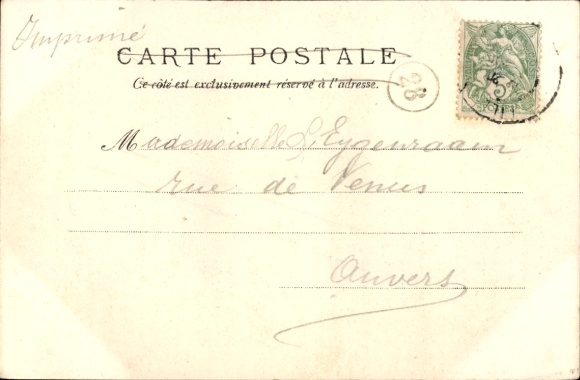 Imprimé
CARTE POSTALE
Ce côté est exclusivement réservé à l'adresse.
28
5
Mademoiselle L. Eygenraam
rue de Venus
Anvers